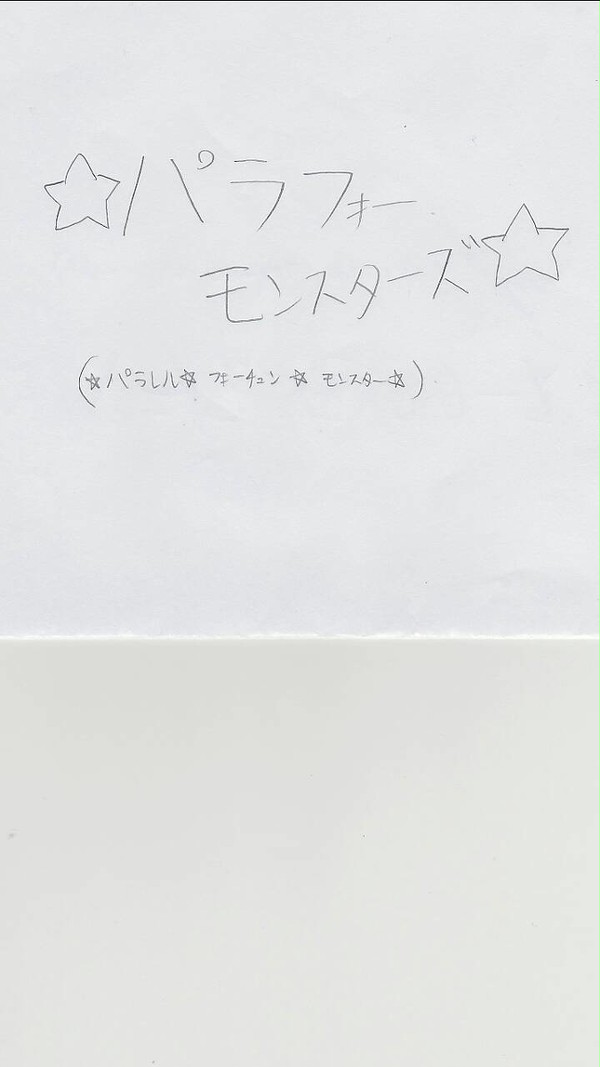 ☆パラフォー
モンスターズ☆
(☆パラレル☆フォーチュン☆モンスター☆)